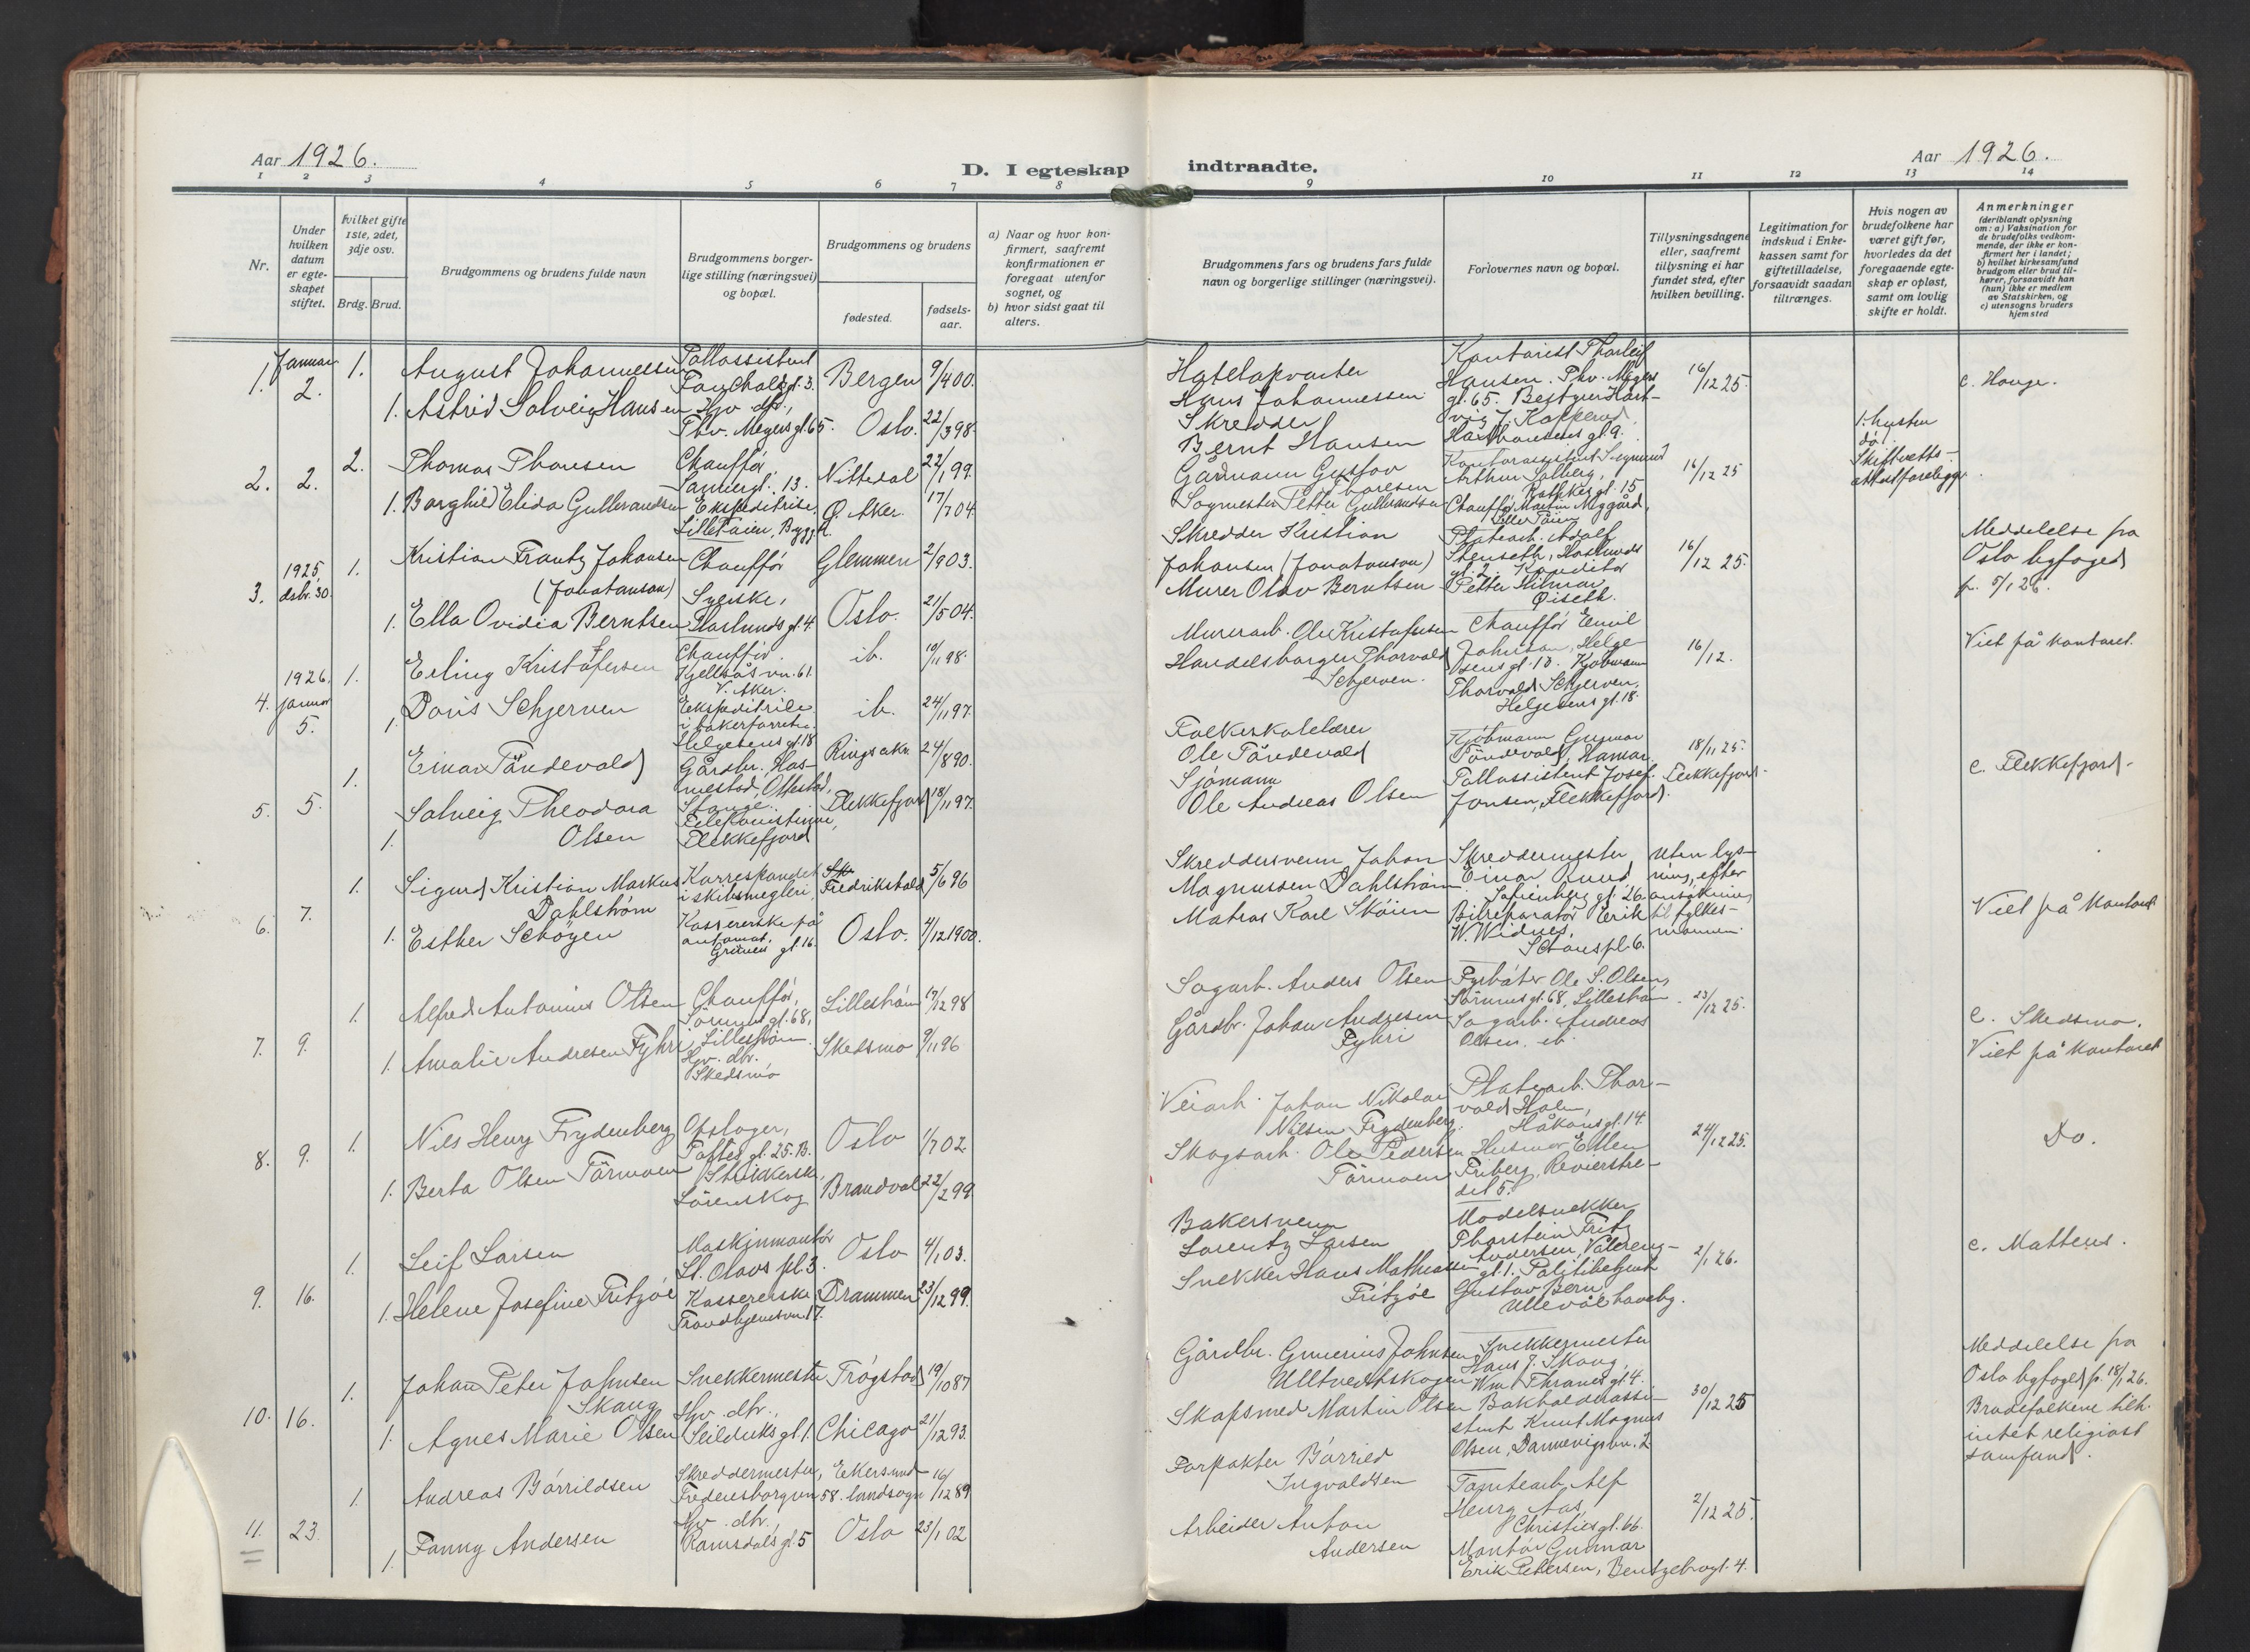 Aar 1926.
D. I egteskap indtraadte.
Aar 1926.
1 2 3 4 5 6 7 8 9 10 11 12 13 14
Nr.
Under hvilken datum er egteskapet stiftet.
Hvilket gifte 1ste, 2det, 3dje osv.
Brdg. Brud.
Brudgommens og brudens fulde navn
Brudgommens borgerlige stilling (næringsvei) og bopæl.
Brudgommens og brudens
fødested.
fødselsaar.
a) Naar og hvor konfirmert, saafremt konfirmationen er foregaat utenfor sognet, og
b) hvor sidst gaat til alters.
Brudgommens fars og brudens fars fulde navn og borgerlige stillinger (næringsvei).
Forlovernes navn og bopæl.
Tillysningsdagene eller, saafremt tillysning ei har fundet sted, efter hvilken bevilling.
Legitimation for indskud i Enkekassen samt for giftetilladelse, forsaavidt saadan tiltrænges.
Hvis nogen av brudefolkene har været gift før, hvorledes da det foregaaende egteskap er opløst, samt om lovlig skifte er holdt.
Anmerkninger
(deriblandt oplysning om: a) Vaksination for de brudefolks vedkommende, der ikke er konfirmert her i landet;
b) hvilket kirkesamfund brudgom eller brud tilhører, forsaavidt han (hun) ikke er medlem av Statskirken, og
c) utensogns bruders hjemsted
1. Januar 2. 1. August Johannessen
Tollassistent
gt. 3. Bergen 9/4 00.
1. Astrid Solveig Hansen Hjv. dtr.,
Thv. Meyers gt. 65. Oslo. 22/3 98.
Hans Johannessen
Skredder
Bernt Hansen
Kontorist Thorleif
Hansen. Thv. Meyers
gt. 65.
16/12 25.
c. Hauge.
2. 2. 2. Thomas Thoresen
Chauffør
Sannergt. 13. Nittedal 22/1 99.
1. Borghild Elida Gullerandsen Ekspeditrise,
Ø. Aker. 17/7 04.
Gårdmann Gustav
Thoresen
Petter Gullerandsen
Arthur Solberg,
gt. 15
16/12 25
1. hustru
død.
Skifteretts-
attest forelagt.
3. 1925 dsbr. 30. 1. Kristian Frantz Johansen
(Jonatanson)
Chauffør Glemmen 2/9 03.
1. Ella Ovidia Berntsen Syerske,
gt. 4. Oslo. 21/5 04.
Skredder Kristian
Johansen (Jonatanson)
Murer Olav Berntsen
Platearb. Adolf
Stenseth,
gt. 2. Konditor
Petter Hilmar
Øiseth.
16/12 25.
Meddelelse fra
Oslo byfoged
fr. 5/1 26.
4. 1926. januar 5. 1. Erling Kristofersen
Chauffør
Kjellsåsvn. 61.
V. Aker. ib. 10/11 98.
1. Doris Schjerven
Ekspeditrise
i bakerforretn.
Helgesens gt. 18 ib. 24/11 97.
Murerarb. Ole Kristofersen
Handelsborger Thorvald
Schjerven.
Chauffør Emil
Johnson, Helge-
sens gt. 10. Kjøbmann
Thorvald Schjerven,
Helgesens gt. 18.
16/12.
Viet på kontoret.
5. 5. 1. Einar Tändevold
Gårdbr.
Ottestad,
Stange. Ringsaker 24/8 90.
1. Solveig Theodora
Olsen
Telefonistinne,
Flekkefjord Flekkefjord 18/11 97.
Folkeskolelærer
Ole Tändevold
Sjømann
Ole Andreas Olsen
Kjøbmann Gunnar
Tändevold, Hamar.
Tollassistent Josef
Jonsen, Flekkefjord.
18/11 25.
Flekkefjord.
c. Flekkefjord.
6. 7. 1. Sigurd Kristian Markus
Dahlstrøm
Korrespondent
i skibsmegleri. Fredrikstad 5/6 96
1. Esther Schøyen
Kassererske på
automat,
Grüners gt. 16. Oslo. 4/12 1900.
Skreddersvenn Johan
Magnussen Dahlstrøm.
Matros Karl Skøien
Skreddermester
Einar Ruud,
Sofienberg gt. 26.
Bilreparatør Erik
W. Widnes,
Schouspl. 6.
Uten lys-
ning, efter
ansøkning
til fylkes-
mannen.
Viet på kontoret
7. 9. 1. Alfred Antonius Olsen Chauffør,
Sørumsgt. 68,
Lillestrøm. Lillestrøm 17/12 98
1. Amalie Andresen Fykri
Hjv. dtr.
Skedsmo Skedsmo 9/11 96
Sagarb. Anders Olsen
Gårdbr. Johan Andresen
Fykri
Fyrbøter Ole S. Olsen,
Sørumsgt. 68, Lillestrøm.
Sagarb. Andreas
Olsen. ib.
23/12 25.
c. Skedsmo.
Viet på kontoret
8. 9. 1. Nils Henry Frydenberg Opslager,
Toftes gt. 25. B. Oslo 1/7 02.
1. Berta Olsen Törmoen Strikkerske,
Lörenskog Brandval 22/2 99.
Veiarb. Johan Nikolai
Nilsen Frydenberg.
Skogsarb. Ole Pedersen
Törmoen
Platearb. Thor-
vald Holm,
Håkons gt. 14.
Husmor Ellen
Friberg, Revierstre-
det 5.
24/12 25.
Do.
9. 16. 1. Leif Larsen
Maskinmontör
St. Olavs pl. 3. Oslo 4/1 03.
1. Helene Josefine Fritzöe Kassererske
Trondhjemsvn. 17. Drammen 23/12 99.
Bakersvenn
Lorentz Larsen
Snekker Hans Mathiassen
Fritzöe
Modelsnekker
Thorstein Fritz
Andersen, Vålereng-
gt. 1. Politibetjent
Gustav Bern,
Ullevål haveby.
2/1 26.
c. Matteus.
10. 16. 1. Johan Peter Johnsen
Skaug
Snekkermester Trøgstad 19/10 87
1. Agnes Marie Olsen
Hjv. dtr.,
Seilduks gt. 1. Chicago 21/12 93.
Gårdbr. Gunerius Johnsen
Ulltvedtskogen
Skapsmed Martin Olsen
Snekkermester
Hans J. Skaug,
Wm. Thranes gt. 4.
Bokholderassi-
stent Knut Magnus
Olsen, Dannevigsvn. 2
30/12 25
Meddelelse fra
Oslo byfoged fr. 18/1 26.
Brudefolkene tilh.
intet religiøst
samfund.
11. 23. 1. Andreas Börrildsen
Skreddermester,
Fredensborgvn 58. Ekersund
landsogn 16/12 89
1. Fanny Andersen
Hjv. dtr.,
Romsdals gt. 5 Oslo 23/1 02
Forpakter Börrild
Ingvaldsen
Arbeider Anton
Andersen
Tomtearb. Alf
Henry Aas,
Christies gt. 66.
Montör Gunnar
Erik Petersen, Bentzebrogt. 4.
2/12 25.